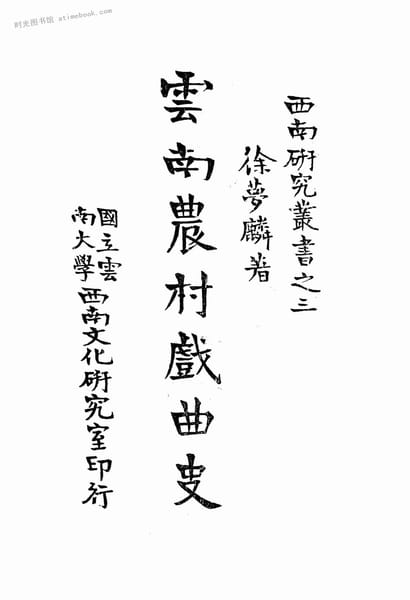 时光图书馆 atimebook.com
西南研究叢書之三
徐夢麟著
雲南農村戲曲史
國立雲南大學西南文化研究室印行